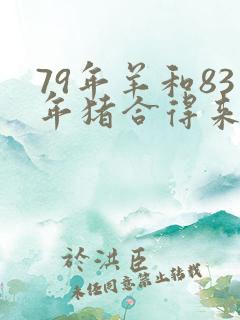 79年羊和83
年猪合得来
於洪臣
未经同意禁止转载